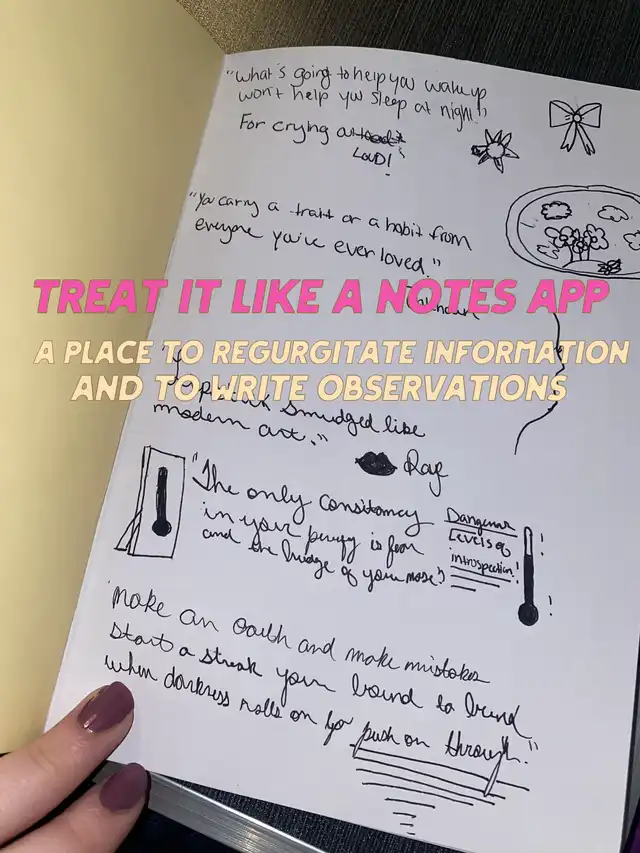 "What's going to help you wake up
won't help you sleep at night!"
For crying out
LOUD!
"You carry a trait or a habit from
everyone you've ever loved."
Unknown
TREAT IT LIKE A NOTES APP
A PLACE TO REGURGITATE INFORMATION
AND TO WRITE OBSERVATIONS
smudged like
modern art."
Ray
"The only consistancy
in your is
and the bridge of your nose"
Dangerous
Levels of
introspection!
!
!
Make an Oath and make mistakes
Start a streak your bound to
when darkness rolls on you push on through."